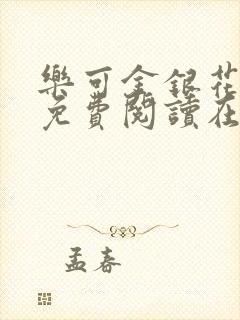 樂可金銀花
免費閱讀在
孟春